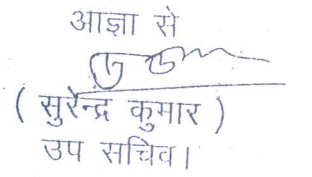 आज्ञा से
( सुरेन्द्र कुमार )
उप सचिव।